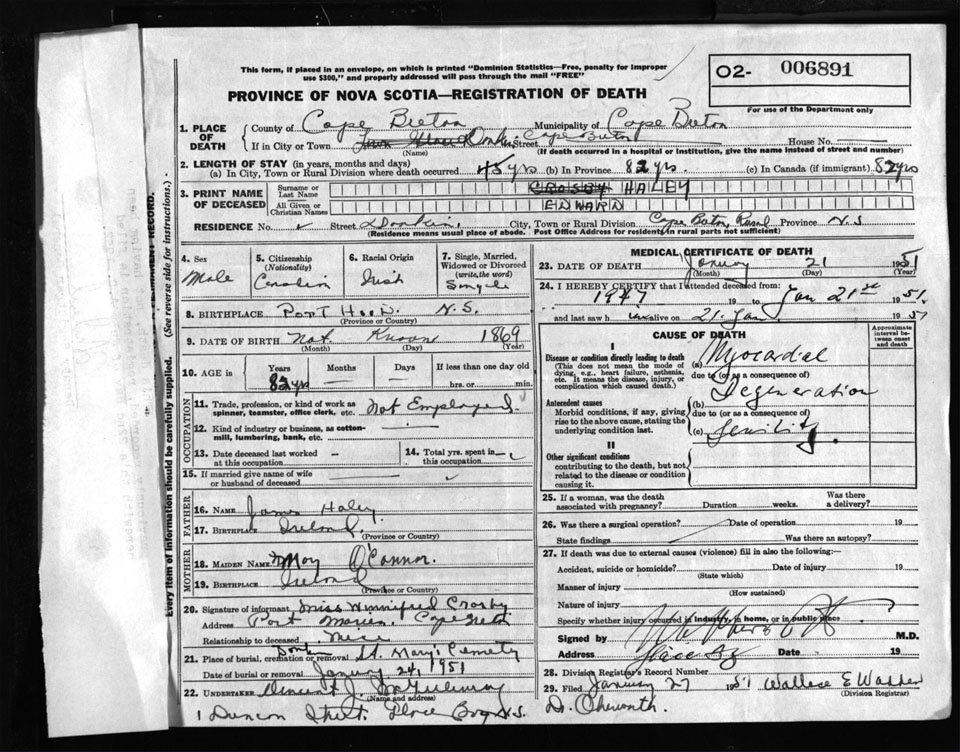 This form, if placed in an envelope, on which is printed "Dominion Statistics—Free, penalty for improper
use $300," and properly addressed will pass through the mail "FREE"
O2- 006891
For use of the Department only
PROVINCE OF NOVA SCOTIA—REGISTRATION OF DEATH
1. PLACE OF DEATH
County of Cape Breton Municipality of Cape Breton
If in City or Town Street Cape Breton House No.
(Name) (If death occurred in a hospital or institution, give the name instead of street and number)
2. LENGTH OF STAY (in years, months and days)
(a) In City, Town or Rural Division where death occurred 45 yrs (b) In Province 82 yrs (c) In Canada (if immigrant) 82 yrs
3. PRINT NAME OF DECEASED
Surname or Last Name CROSBY HALEY
All Given or Christian Names EDWARD
RESIDENCE No. Street Donkin, City, Town or Rural Division Cape Breton, Rural Province N.S
(Residence means usual place of abode. Post Office Address for residents in rural parts not sufficient)
4. Sex Male
5. Citizenship (Nationality) Canadian
6. Racial Origin Irish
7. Single, Married, Widowed or Divorced (write the word) Single
8. BIRTHPLACE PORT HOOD. N.S.
(Province or Country)
9. DATE OF BIRTH Not Known 1869
(Month) (Day) (Year)
10. AGE in Years 82 yrs Months — Days — If less than one day old
hrs. or min.
OCCUPATION
11. Trade, profession, or kind of work as spinner, teamster, office clerk, etc. Not Employed.
12. Kind of industry or business, as cotton-mill, lumbering, bank, etc.
13. Date deceased last worked at this occupation —
14. Total yrs. spent in this occupation —
15. If married give name of wife or husband of deceased
FATHER
16. NAME James Haley
17. BIRTHPLACE Ireland.
(Province or Country)
MOTHER
18. MAIDEN NAME Mary O'Connor.
19. BIRTHPLACE Ireland
(Province or Country)
20. Signature of informant Miss Winnifred Crosby
Address Port Morien, Cape Breton
Relationship to deceased Niece
21. Place of burial, cremation or removal Donkin St. Mary's Cemetery
Date of burial or removal January 24, 1951
22. UNDERTAKER Vincent J.
(Name and address)
1 Duncan Street. Glace Bay N.S.
MEDICAL CERTIFICATE OF DEATH
23. DATE OF DEATH January 21 1951
(Month) (Day) (Year)
24. I HEREBY CERTIFY that I attended deceased from:
1947 19 to Jan 21st 1951.
and last saw h im alive on 21. Jan. 1951
CAUSE OF DEATH
Approximate interval between onset and death
I
Disease or condition directly leading to death
(This does not mean the mode of dying, e.g., heart failure, asthenia, etc. It means the disease, injury, or complication which caused death.)
(a) Myocardial
due to (or as a consequence of)
Degeneration
Antecedent causes
Morbid conditions, if any, giving rise to the above cause, stating the underlying condition last.
(b)
due to (or as a consequence of)
(c) Senility.
II
Other significant conditions
contributing to the death, but not related to the disease or condition causing it.
25. If a woman, was the death associated with pregnancy? Duration weeks. Was there a delivery?
26. Was there a surgical operation? Date of operation 19
State findings Was there an autopsy?
27. If death was due to external causes (violence) fill in also the following:—
Accident, suicide or homicide? Date of injury 19
(State which)
Manner of injury
(How sustained)
Nature of injury
Specify whether injury occurred in industry, in home, or in public place
Signed by M.D.
Address Glace Bay Date 19
28. Division Registrar's Record Number
29. Filed January 27 1951 Wallace E Wadden
(Division Registrar)
Every item of information should be carefully supplied. (See reverse side for instructions.)